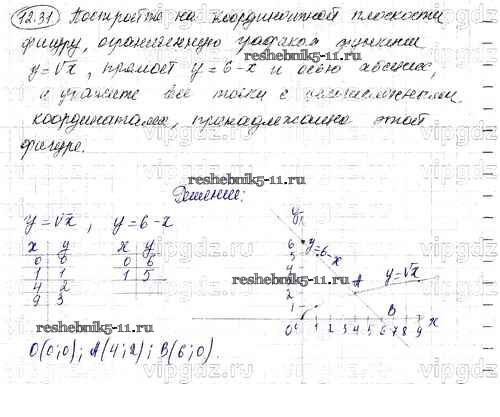 12.31 Постройте на координатной плоскости
фигуру, ограниченную графиком функции
y=√x, прямой y=6-x и осью абсцисс,
и укажите все точки с целочисленными
координатами, принадлежащие этой
фигуре.
reshebnik5-11.ru
Решение:
y=√x, y=6-x
x y x y
0 0 0 6
1 1 1 5
4 2
9 3
y
6
5
y=6-x
A
y=√x
2
1
B
0 1 2 3 4 5 6 7 8 9 x
reshebnik5-11.ru
reshebnik5-11.ru
reshebnik5-11.ru
O(0;0); A(4;2); B(6;0).
vipgdz.com